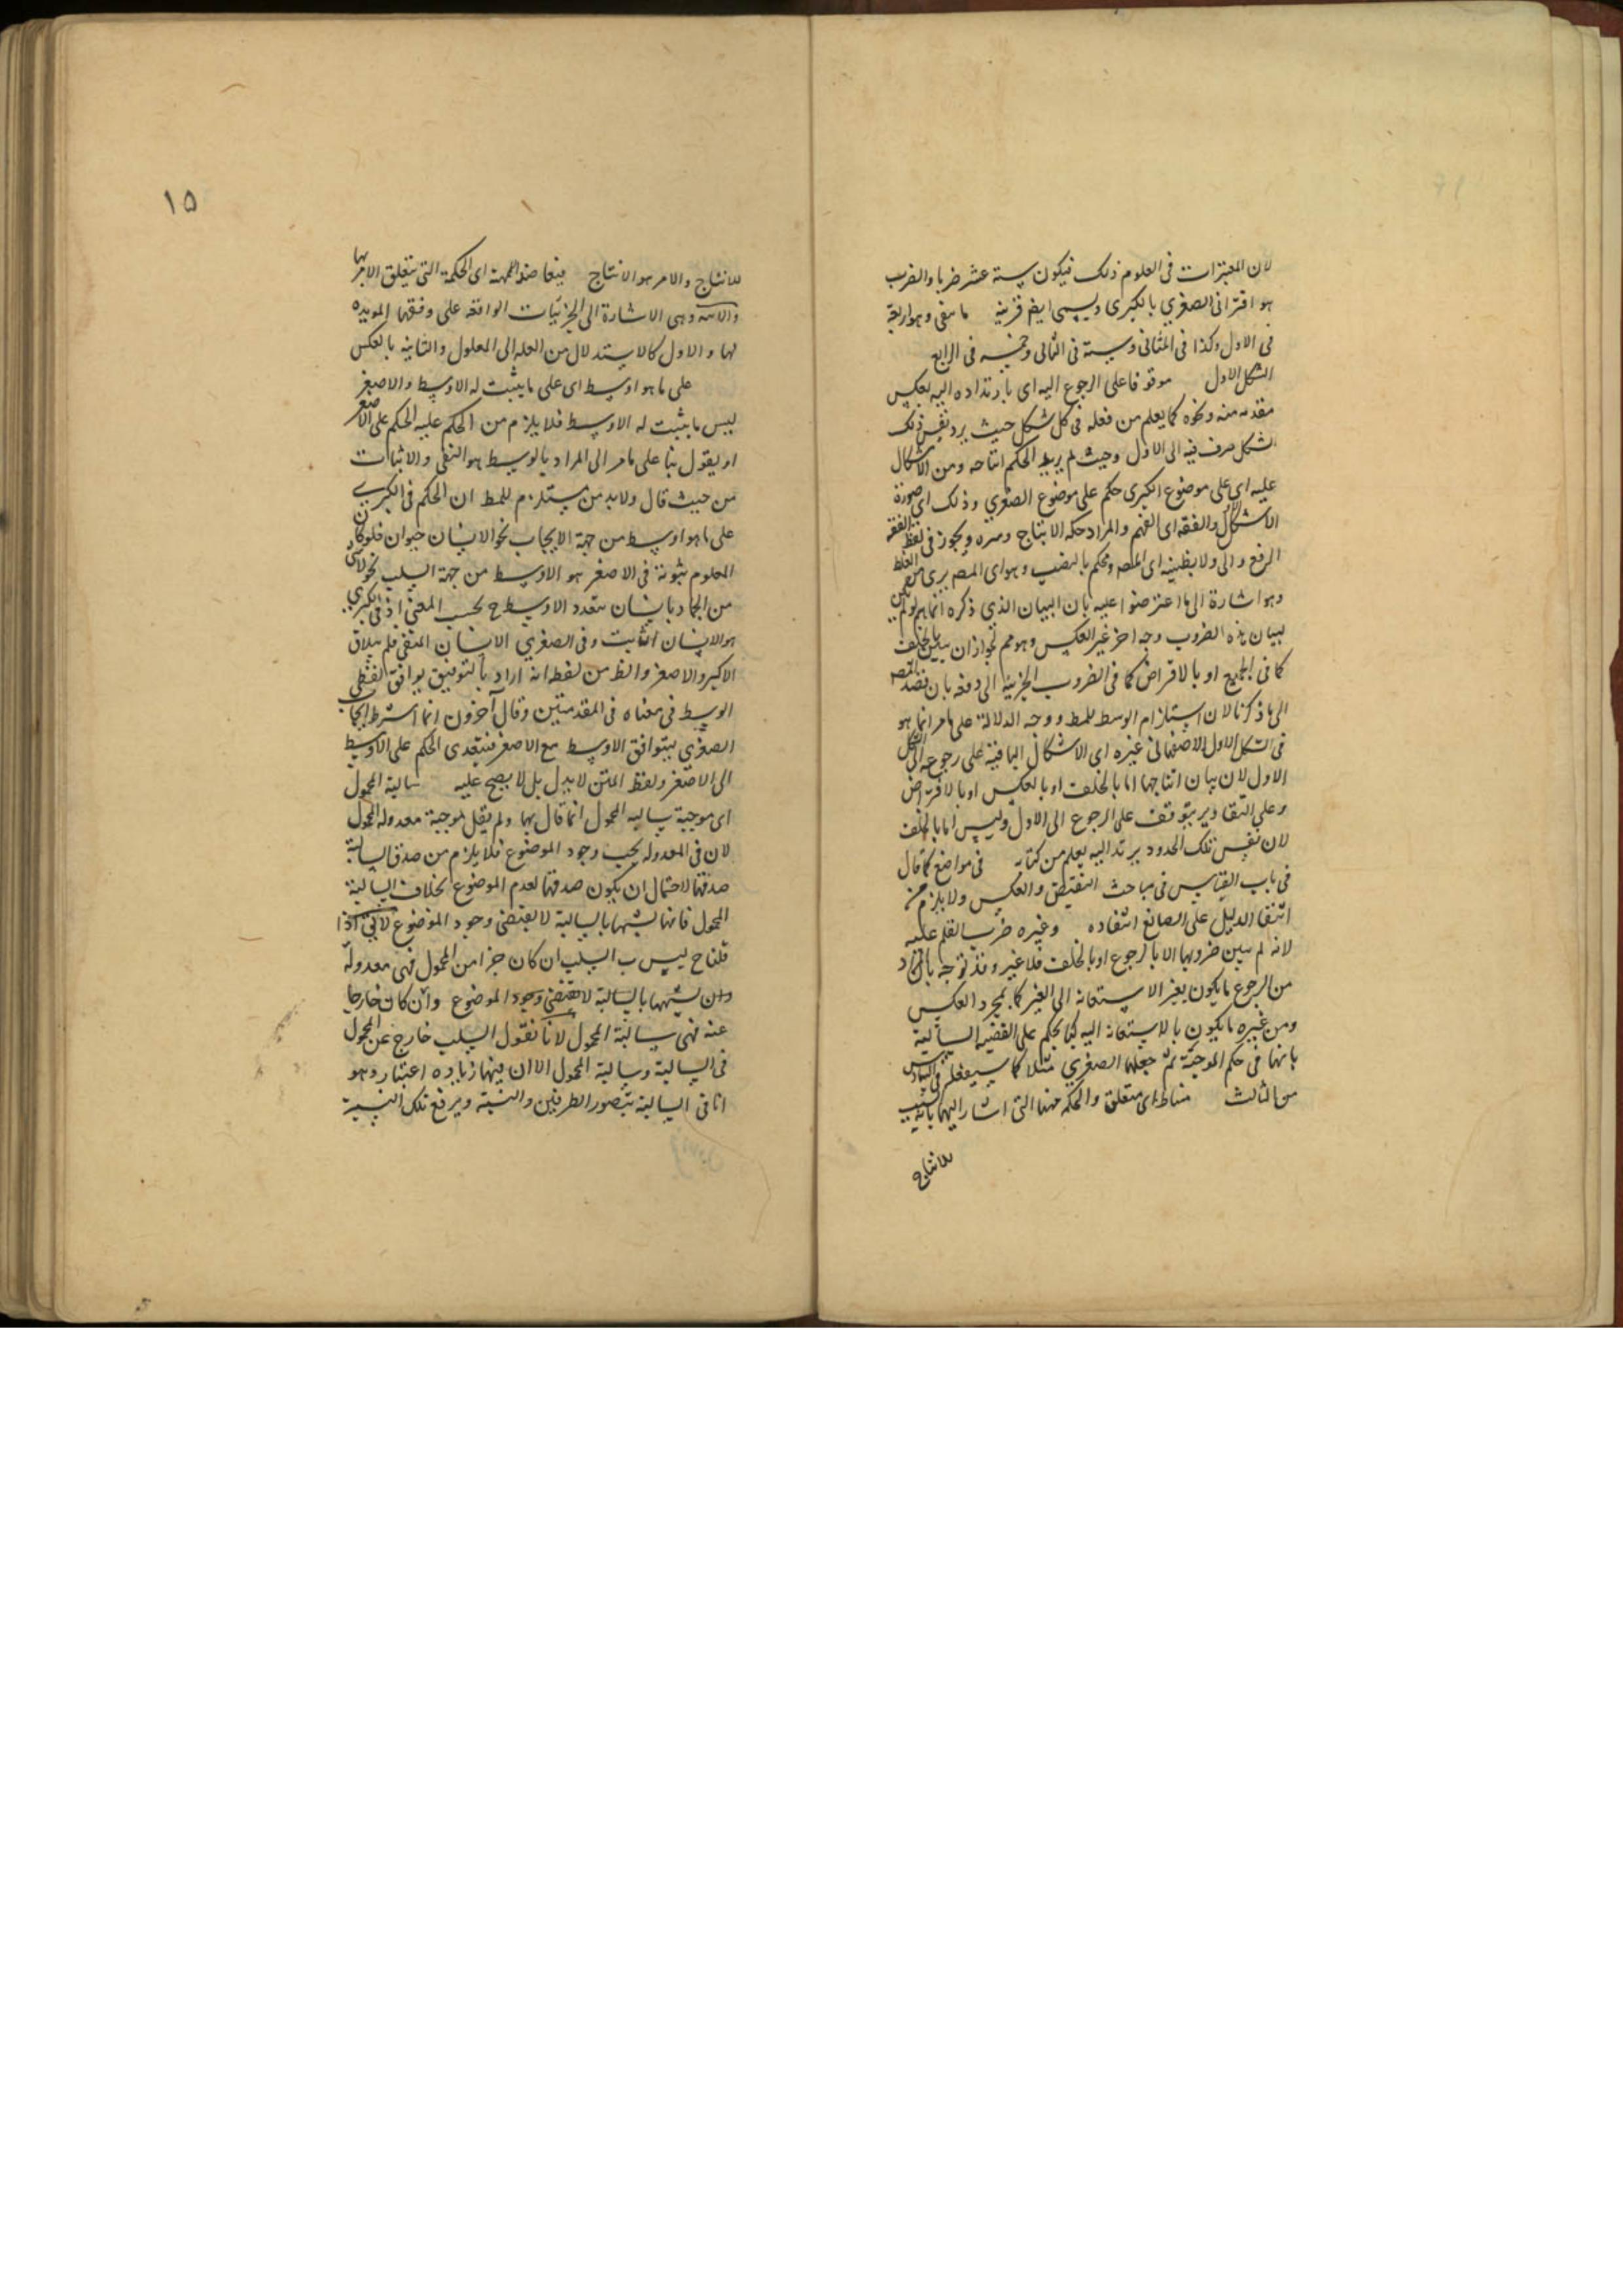 لان المعتبرات في العلوم ذلك فيكون ستة عشر ضربا والضرب
هو اقتران الصغري بالكبرى ويسمى ايضا قرينة ما بقى وهو اربعة
في الاول وكذا في الثاني وستة في الثالث وخمسة في الرابع
الشكل الاول موقوفا على الرجوع اليه اى بارتداده اليه بعكس
مقدمه منه ونحوه كما يعلم من فعله في كل شكل حيث يرد نفس ذلك
الشكل صرف فيه الى الاول وحيث لم يرد الحكم انتاجه ومن الاشكال
عليه اى على موضوع الكبرى حكم على موضوع الصغري وذلك اى صورة
الاشكال والفقه اى الفهم والمراد حكم الانتاج وسره ويجوز في لفظ الفقه
الرفع والى ولا بظنه اى المص ومحكم بالنصب وهو اى المص يرى من الغلط
وهو اشارة الى ما اعترضوا عليه بان البيان الذي ذكره انما يتم لو لم يكن
لبيان هذه الضروب وجه اخر غير العكس وهو مم لجواز ان يبين بالخلف
كما في الجميع او بالافتراض كما في الضروب الجزئية الى دفعه بان قصد المص
الى ما ذكرنا لان استلزام الوسط للمط ووجه الدلالة على ما مر انما هو
في الشكل الاول الاصفهانى غيره اى الاشكال الباقية على رجوعه الى الشكل
الاول لان بيان انتاجها اما بالخلف او بالعكس او بالافتراض
وعلى التقادير يتوقف على الرجوع الى الاول وليس اما بالخلف
لان نفس تلك الحدود يرتد اليه يعلم من كتابه في مواضع كما قال
في باب القياس في مباحث النقيض والعكس ولا يلزم من
انتفا الدليل على الصانع انتفاده وغيره ضرب القلم عليه
لانه لم يبين ضروبها الا بالرجوع او بالخلف فلا غير وقد توجه بان المراد
من الرجوع ما يكون بغير الاستعانه الى الغير كما بمجرد العكس
ومن غيره ما يكون بالاستعانه اليه كما يحكم على القضيه السالبة
بانها في حكم الموجبة ثم جعلها الصغري مثلا كما سيفعله في السادس
من الثالث مناط اى متعلق والحكمه منها التي اشار اليهما بالسبب
للانتاج
١٥
للانتاج والامر هو الانتاج فيقاضوا المهمة اى الحكمة التي يتعلق الامر بها
والآية وهى الاشارة الى الجزئيات الواقعه على وفقها المويده
لها والاول كالاستدلال من العله الى المعلول والثانيه بالعكس
على ما هو اوسط اى على ما يثبت له الاوسط والاصغر
ليس ما يثبت له الاوسط فلا يلزم من الحكم عليه الحكم على الاصغر
او يقول بنا على ما مر الى المراد بالوسط هو النفى والاثبات
من حيث قال ولابد من مستلزم للمط ان الحكم في الكبري
على ما هو اوسط من جهة الايجاب نحو الانسان حيوان فلو كان
المعلوم ثبوته في الاصغر هو الاوسط من جهة السلب نحو لا شى
من الجماد بانسان يتعدد الاوسط ح بحسب المعنى اذ في الكبري
هو الانسان الثابت وفي الصغري الانسان المنفى فلم يتلاق
الاكبر والاصغر والظ من لفظه انه اراد بالتوفيق يوافق لفظى
الوسط في معناه في المقدمتين وقال آخرون انما اشترط ايجاب
الصغري ليتوافق الاوسط مع الاصغر فيتعدى الحكم على الاوسط
الى الاصغر ولفظ المتن لا يدل بل لا يصح عليه سالبة المحمول
اى موجبة سالبه المحمول انما قال بها ولم يقل موجبة معدوله المحمول
لان في المعدوله يجب وجود الموضوع فلا يلزم من صدق السالبة
صدقها لاحتمال ان يكون صدقها لعدم الموضوع بخلاف السالبة
المحمول فانها لشبهها بالسالبة لا يقتضى وجود الموضوع لا يق اذا
قلنا ج ليس ب السلب ان كان جزا من المحمول فهى معدوله
وان لشبهها بالسالبة لا يقتضى وجود الموضوع وان كان خارجا
عنه فهى سالبة المحمول لانا نقول السلب خارج عن المحمول
في السالبة وسالبة المحمول الا ان فيها زيادة اعتبار وهو
انا في السالبة نتصور الطرفين والنسبة ويرفع تلك النسبة